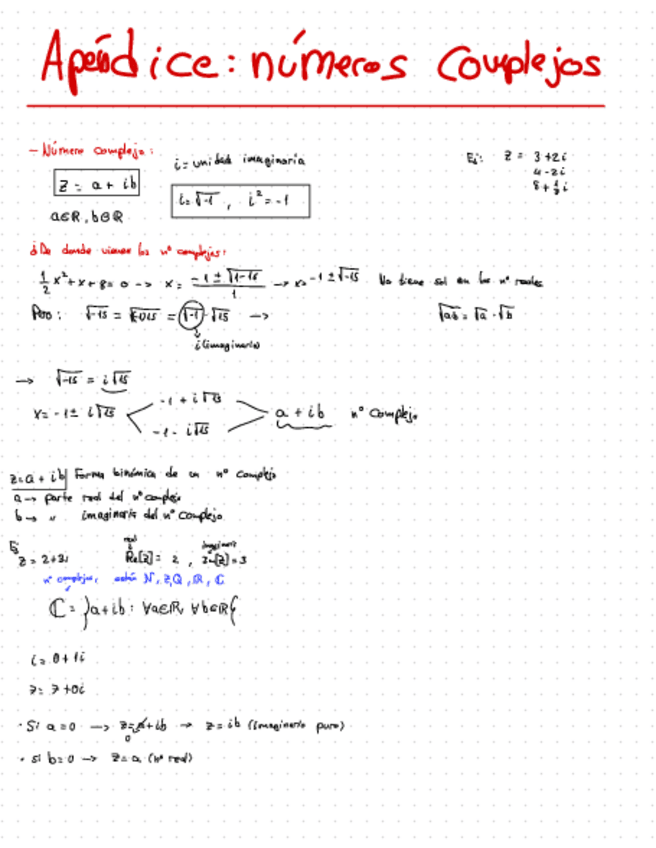 Apéndice: números complejos
- Número complejo:
i = unidad imaginaria
Ej: z = 3+2i
4-2i
z = a + ib
i = √-1 , i² = -1
a∈ℝ, b∈ℝ
¿De donde vienen los nº complejos?
1/2 x² + x + 8 = 0 -> x = (-1 ± √1-16)/1 -> x = -1 ± √-15 No tiene sol en los nº reales
Pero: √-15 = √(-1)15 = √-1 · √15 ->
√ab = √a · √b
i (imaginario)
-> √-15 = i√15
x = -1 ± i√15
-1 + i√15
-1 - i√15
a + ib nº complejo
z = a + ib Forma binómica de un nº complejo
a -> parte real del nº complejo
b -> " imaginaria del nº complejo
Ej
z = 2+3i
real
Re[z] = 2 ,
imaginaria
Im[z] = 3
nº complejos, están N, Z, Q, ℝ, ℂ
ℂ = }a + ib : ∀a∈ℝ, ∀b∈ℝ{
i = 0 + 1i
7 = 7 + 0i
· Si a = 0 -> z = a + ib -> z = ib (imaginario puro)
0
· Si b = 0 -> z = a (nº real)